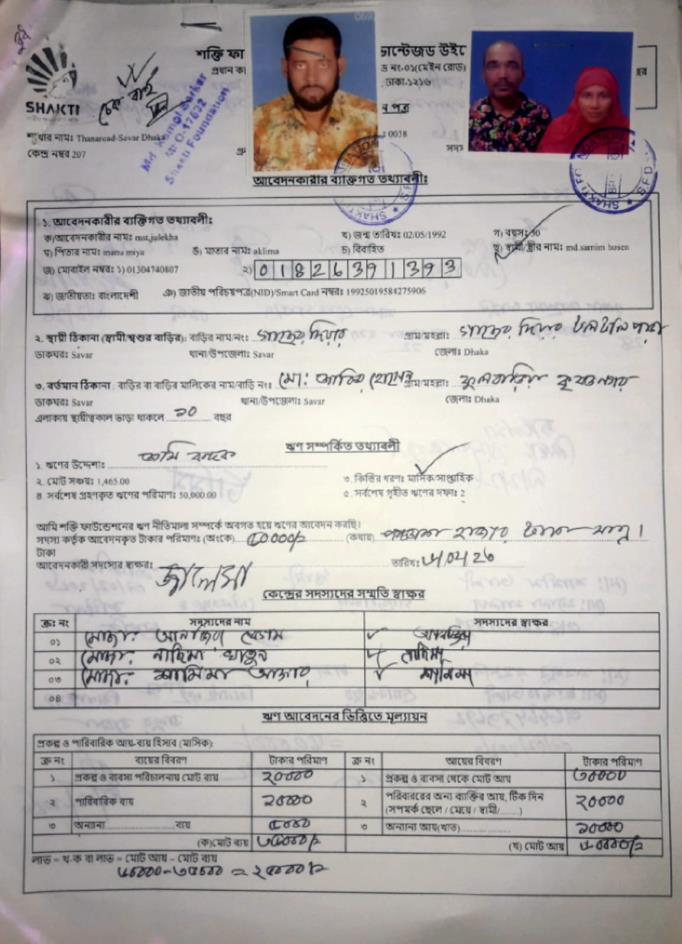 SHAKTI
শক্তি ফা
ডান্টেজড উইমে
প্রধান কা
ড নং-০১(মেইন রোড)
ঢাকা-১২১৬
ন পত্র
0038
Md. Kamol Sarkar
Shakti Foundation
শাখার নাম: Thanaroad-Savar Dhaka
কেন্দ্র নম্বর 207
আবেদনকারীর ব্যক্তিগত তথ্যাবলী:
১. আবেদনকারীর ব্যক্তিগত তথ্যাবলী:
ক)আবেদনকারীর নামঃ mst.julekha খ) জন্ম তারিখঃ 02/05/1992 গ) বয়সঃ 30
ঘ) পিতার নামঃ mana miya ঙ) মাতার নামঃ aklima চ) বিবাহিত ছ) স্বামী/স্ত্রীর নামঃ md.samim husen
জ) মোবাইল নম্বরঃ ১) 01304740807 ২) 01826391393
ঝ) জাতীয়তাঃ বাংলাদেশী ঞ) জাতীয় পরিচয়পত্র(NID)/Smart Card নম্বরঃ 19925019584275906
২. স্থায়ী ঠিকানা (স্বামী/শ্বশুর বাড়ির): বাড়ির নাম/নং: গ্রাম/মহল্লা:
ডাকঘরঃ Savar থানা/উপজেলাঃ Savar জেলাঃ Dhaka
৩. বর্তমান ঠিকানা : বাড়ির বা বাড়ির মালিকের নাম/বাড়ি নং: মো: গ্রাম/মহল্লা: ফুলবাড়িয়া
ডাকঘরঃ Savar থানা/উপজেলাঃ Savar জেলাঃ Dhaka
এলাকায় স্থায়ীত্বকাল ভাড়া থাকলে ১০ বছর
ঋণ সম্পর্কিত তথ্যাবলী
১. ঋণের উদ্দেশ্যঃ
২. মোট সঞ্চয়ঃ 1,465.00 ৩. কিস্তির ধরণঃ মাসিক/সাপ্তাহিক
৪. সর্বশেষ গ্রহণকৃত ঋণের পরিমাণঃ 50,000.00 ৫. সর্বশেষ গৃহীত ঋণের দফাঃ 2
আমি শক্তি ফাউন্ডেশনের ঋণ নীতিমালা সম্পর্কে অবগত হয়ে ঋণের আবেদন করছি।
সদস্য কর্তৃক আবেদনকৃত টাকার পরিমাণঃ (অংকে) ৫০০০০/= (কথায়) পঞ্চাশ হাজার টাকা মাত্র।
টাকা
আবেদনকারী সদস্যের স্বাক্ষরঃ তারিখঃ
কেন্দ্রের সদস্যদের সম্মতি স্বাক্ষর
ক্রঃ নং সদস্যদের নাম সদস্যদের স্বাক্ষর
০১ মোছা: বেগম
০২ মোছা: নাছিমা খাতুন নাছিমা
০৩ মোছা: শামিমা আক্তার শামিমা
০৪
ঋণ আবেদনের ভিত্তিতে মূল্যায়ন
প্রকল্প ও পারিবারিক আয়-ব্যয় হিসাব (মাসিক)
ক্র নং ব্যয়ের বিবরণ টাকার পরিমাণ ক্র নং আয়ের বিবরণ টাকার পরিমাণ
১ প্রকল্প ও ব্যবসা পরিচালনায় মোট ব্যয় ২০০০০ ১ প্রকল্প ও ব্যবসা থেকে মোট আয় ৩০০০০
২ পারিবারিক ব্যয় ১০০০০ ২ পরিবারের অন্য ব্যক্তির আয়, টিক দিন ২০০০০
(সম্পর্ক ছেলে / মেয়ে / স্বামী/......)
৩ অন্যান্য ব্যয় ৫০০০ ৩ অন্যান্য আয়(খাত) ১০০০০
(ক)মোট ব্যয় ৩৫০০০/= (খ) মোট আয় ৬০০০০/=
লাভ = খ-ক বা লাভ = মোট আয় – মোট ব্যয়
৬০০০০-৩৫০০০ = ২৫০০০/=